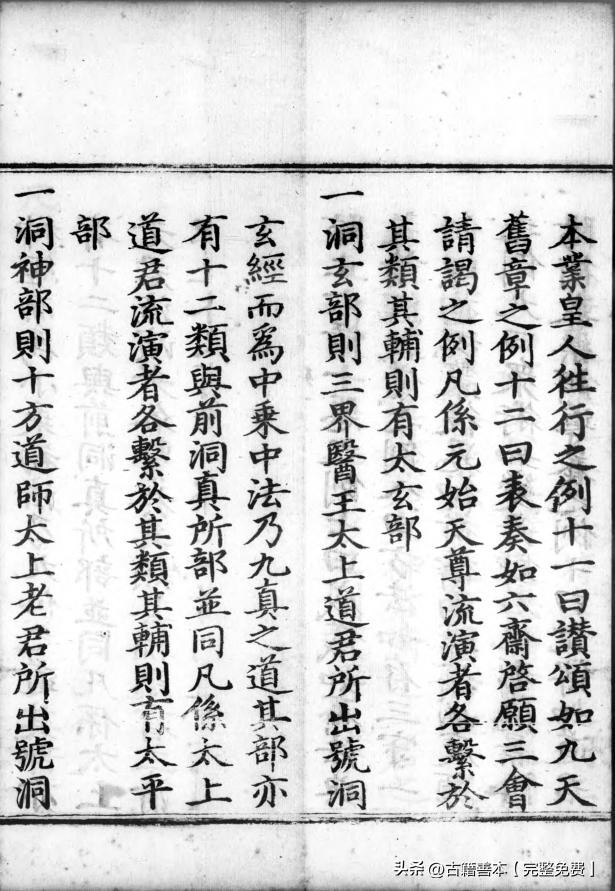 本業皇人往行之例十一曰讃頌如九天
舊章之例十二曰表奏如六齋啓願三會
請謁之例凡係元始天尊流演者各繫於
其類其輔則有太玄部
一洞玄部則三界醫王太上道君所出號洞
玄經而為中乘中法乃九真之道其部亦
有十二類與前洞真所部並同凡係太上
道君流演者各繫於其類其輔則有太平
部
一洞神部則十方道師太上老君所出號洞
头条 @古籍善本【完整免费】